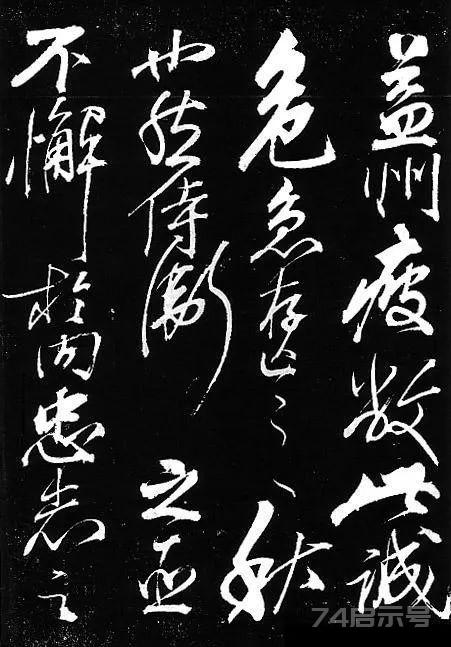 益州疲敝此誠
危急存亡之秋
也然侍衛之臣
不懈於内忠志之
74启示号